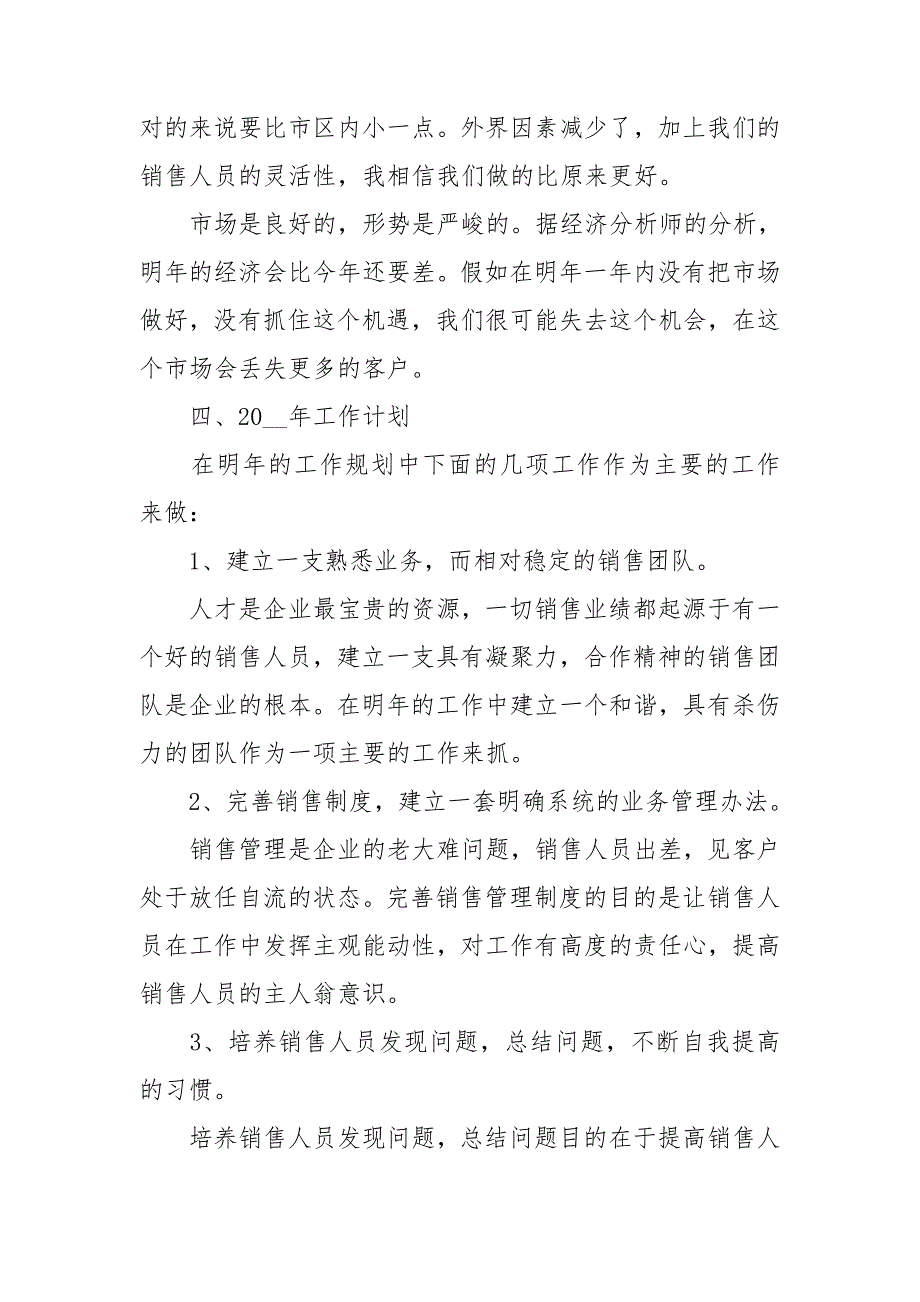 对的来说要比市区内小一点。外界因素减少了，加上我们的
销售人员的灵活性，我相信我们做的比原来更好。
市场是良好的，形势是严峻的。据经济分析师的分析，
明年的经济会比今年还要差。假如在明年一年内没有把市场
做好，没有抓住这个机遇，我们很可能失去这个机会，在这
个市场会丢失更多的客户。
四、20__年工作计划
在明年的工作规划中下面的几项工作作为主要的工作
来做：
1、建立一支熟悉业务，而相对稳定的销售团队。
人才是企业最宝贵的资源，一切销售业绩都起源于有一
个好的销售人员，建立一支具有凝聚力，合作精神的销售团
队是企业的根本。在明年的工作中建立一个和谐，具有杀伤
力的团队作为一项主要的工作来抓。
2、完善销售制度，建立一套明确系统的业务管理办法。
销售管理是企业的老大难问题，销售人员出差，见客户
处于放任自流的状态。完善销售管理制度的目的是让销售人
员在工作中发挥主观能动性，对工作有高度的责任心，提高
销售人员的主人翁意识。
3、培养销售人员发现问题，总结问题，不断自我提高
的习惯。
培养销售人员发现问题，总结问题目的在于提高销售人